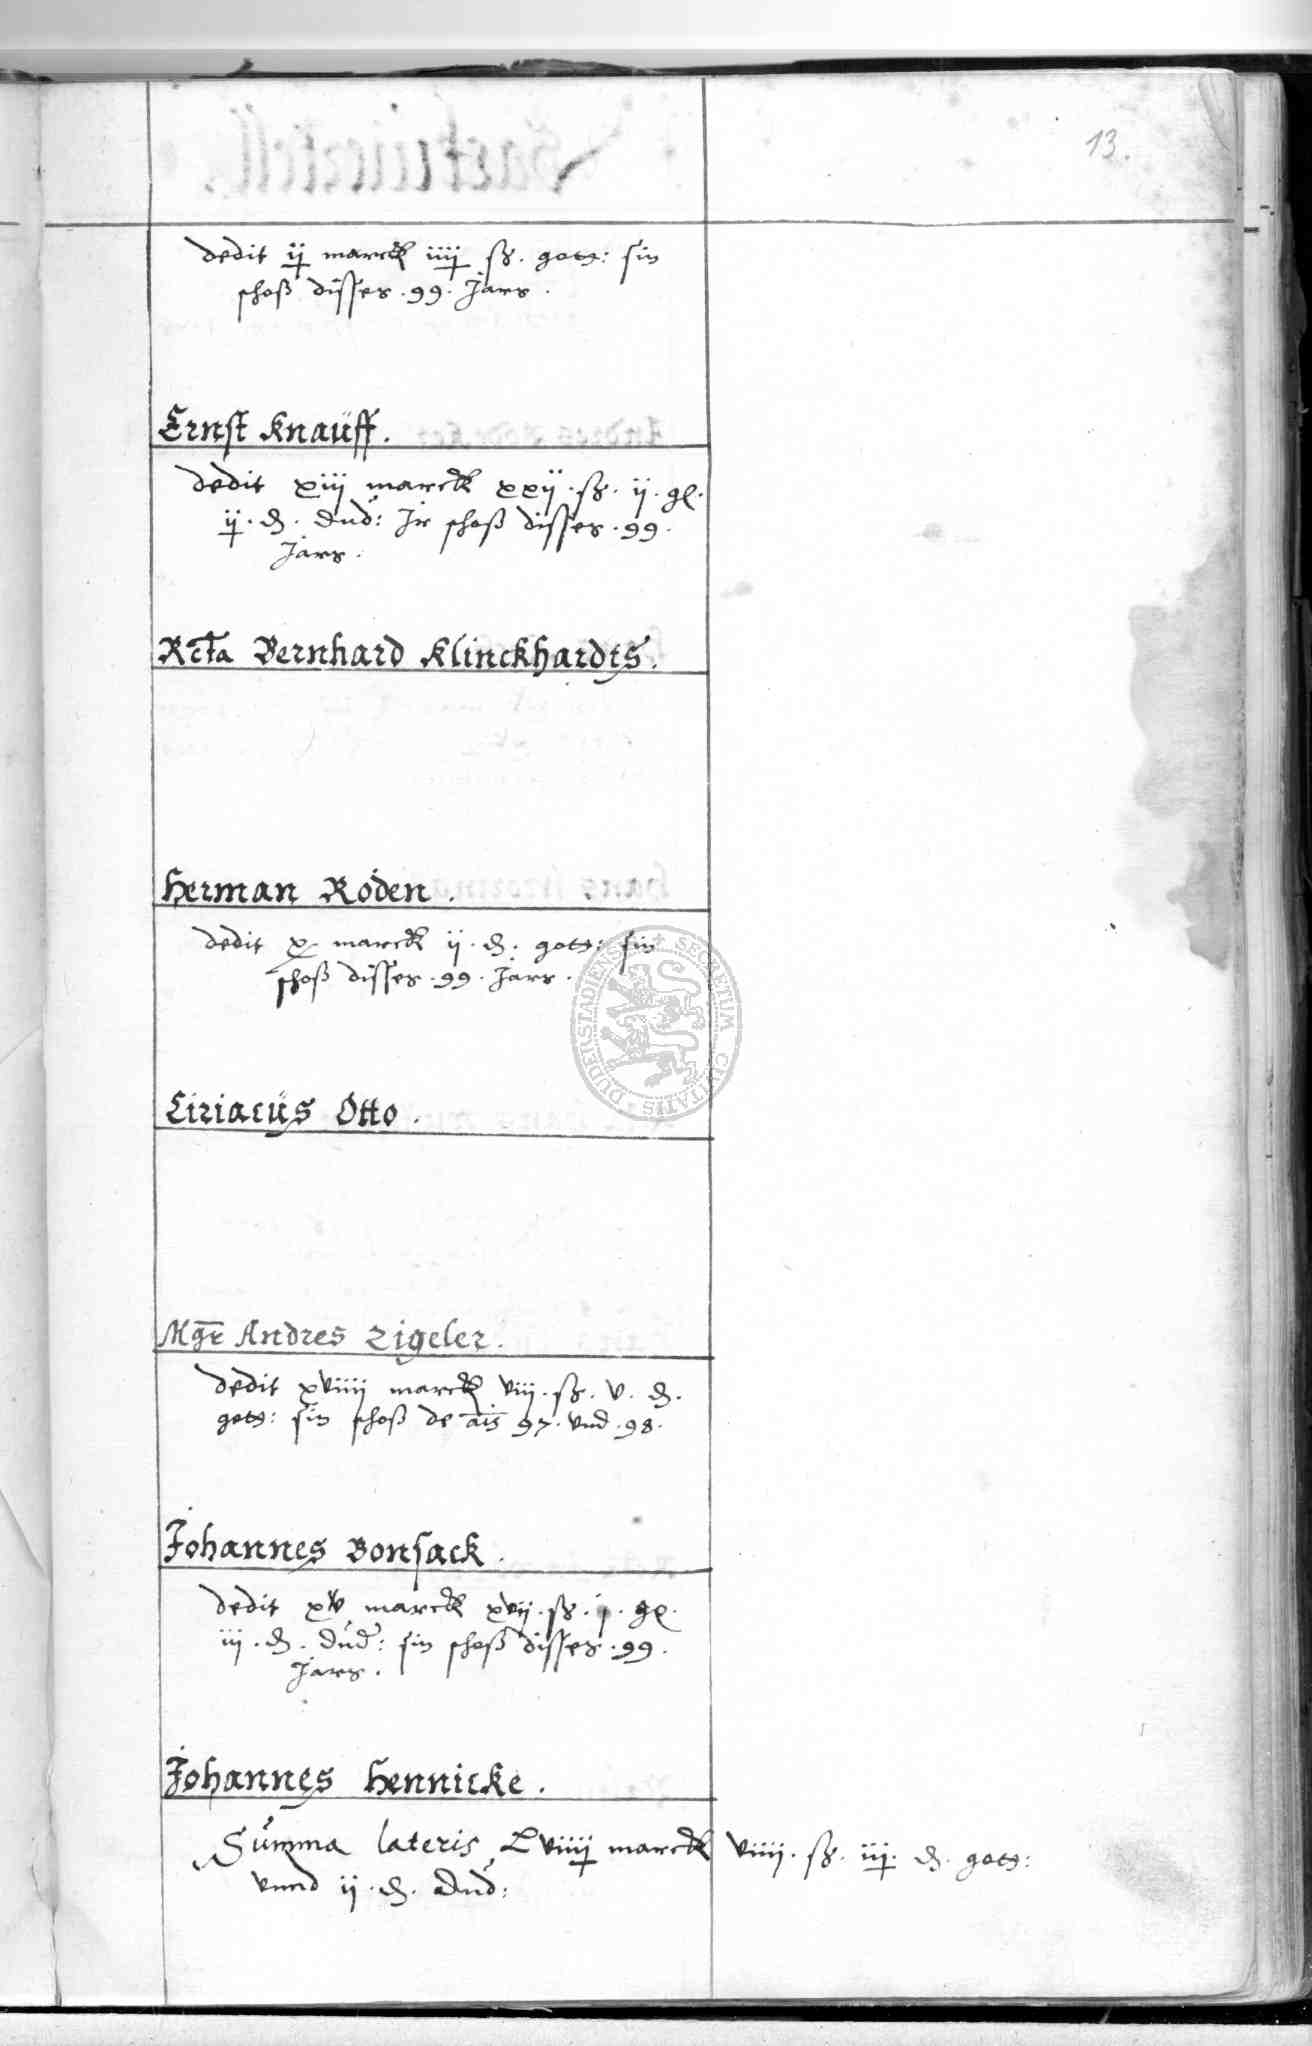 13.
dedit ij marck iiij ß. gott: sin
schoß disses .99. Jars.
Ernst Knauff.
dedit xiij marck xxij. ß. ij. gl.
ij. d. Dud: Jr schoß disses .99.
Jars.
Rcta Bernhard Klinckhardts.
Herman Roden.
dedit x marck ij. d. gott: sin
schoß disses .99. Jars.
Ciriacus Otto.
Mgr Andres Zigeler.
dedit xviiij marck viij. ß. v. d.
gott: sin schoß de ais 97. vnd .98.
Johannes Bonsack.
dedit xv marck xvij. ß. j. gl.
iij. d. Dud: sin schoß disses .99.
Jars.
Johannes Hennicke.
Summa lateris Lviiij marck viiij. ß. iij. d. gott:
vnnd ij. d. Dud:
SECRETUM CIVITATIS DUDERSTADIENSIS